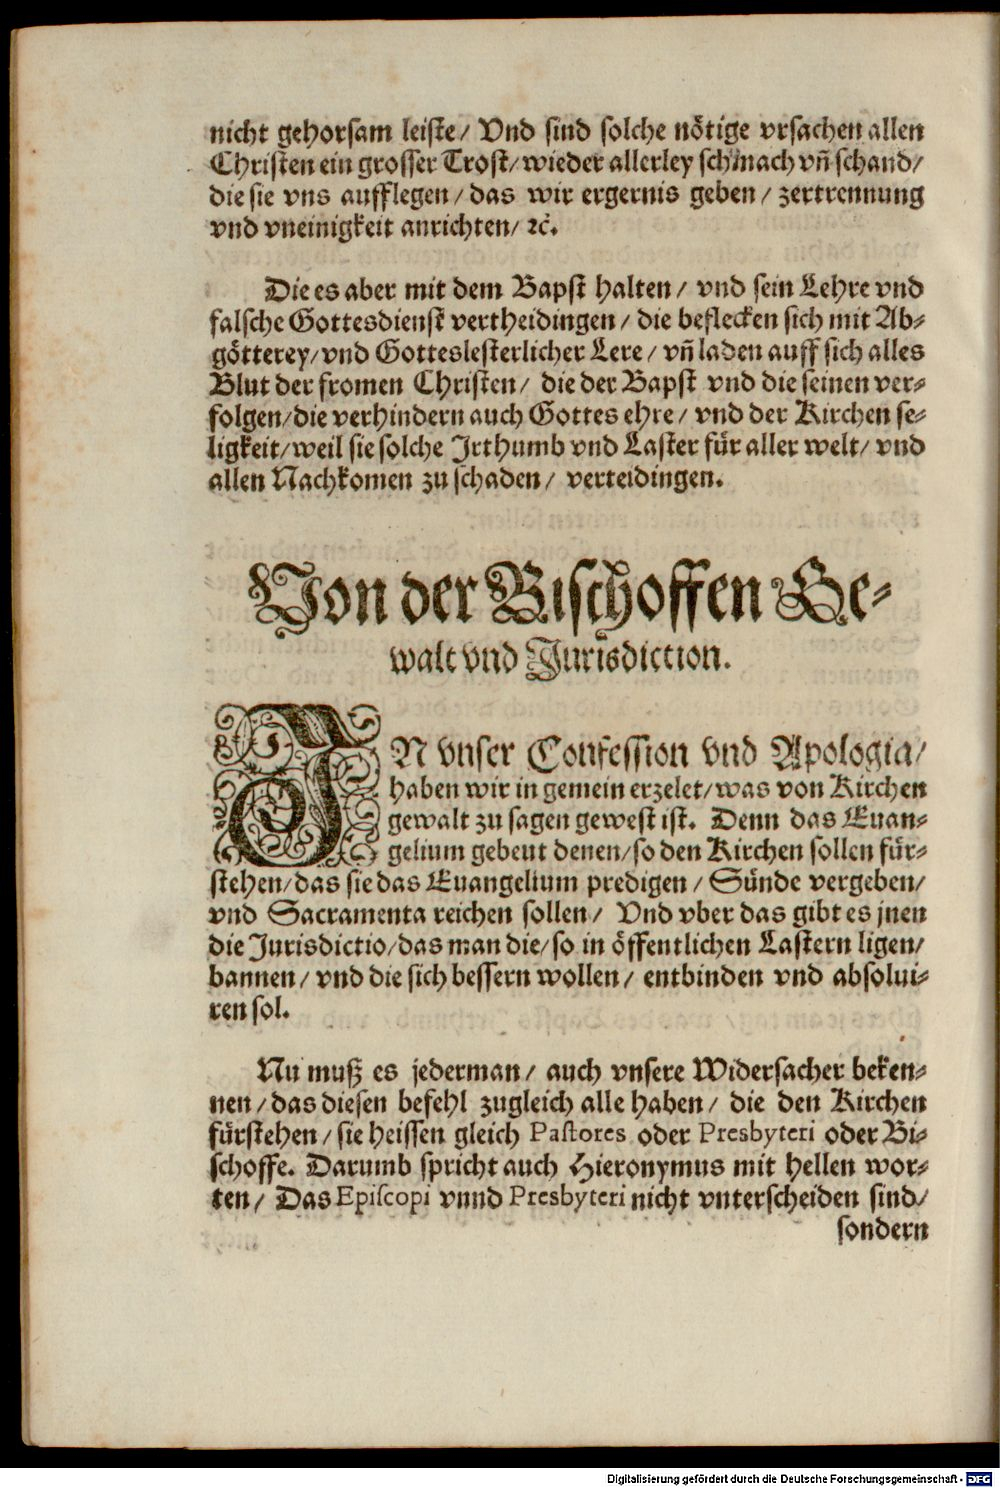 nicht gehorsam leiste/ Vnd sind solche nötige vrsachen allen
Christen ein grosser Trost/ wieder allerley schmach vñ schand/
die sie vns aufflegen/ das wir ergernis geben/ zertrennung
vnd vneinigkeit anrichten/ ꝛc̃.
Die es aber mit dem Bapst halten/ vnd sein Lehre vnd
falsche Gottesdienst vertheidingen/ die beflecken sich mit Ab-
götterey/ vnd Gotteslesterlicher Lere/ vñ laden auff sich alles
Blut der fromen Christen/ die der Bapst vnd die seinen ver-
folgen/ die verhindern auch Gottes ehre/ vnd der Kirchen se-
ligkeit/ weil sie solche Irthumb vnd Laster für aller welt/ vnd
allen Nachkomen zu schaden/ verteidingen.
Von der Bischoffen Ge-
walt vnd Jurisdiction.
IN vnser Confession vnd Apologia/
haben wir in gemein erzelet/ was von Kirchen
gewalt zu sagen gewest ist. Denn das Euan-
gelium gebeut denen/ so den Kirchen sollen für-
stehen/ das sie das Euangelium predigen/ Sünde vergeben/
vnd Sacramenta reichen sollen/ Vnd vber das gibt es jnen
die Jurisdictio/ das man die/ so in öffentlichen Lastern ligen/
bannen/ vnd die sich bessern wollen/ entbinden vnd absolui-
ren sol.
Nu muß es jederman/ auch vnsere Widersacher beken-
nen/ das diesen befehl zugleich alle haben/ die den Kirchen
fürstehen/ sie heissen gleich Pastores oder Presbyteri oder Bi-
schoffe. Darumb spricht auch Hieronymus mit hellen wor-
ten/ Das Episcopi vnnd Presbyteri nicht vnterscheiden sind/
sondern
Digitalisierung gefördert durch die Deutsche Forschungsgemeinschaft - DFG